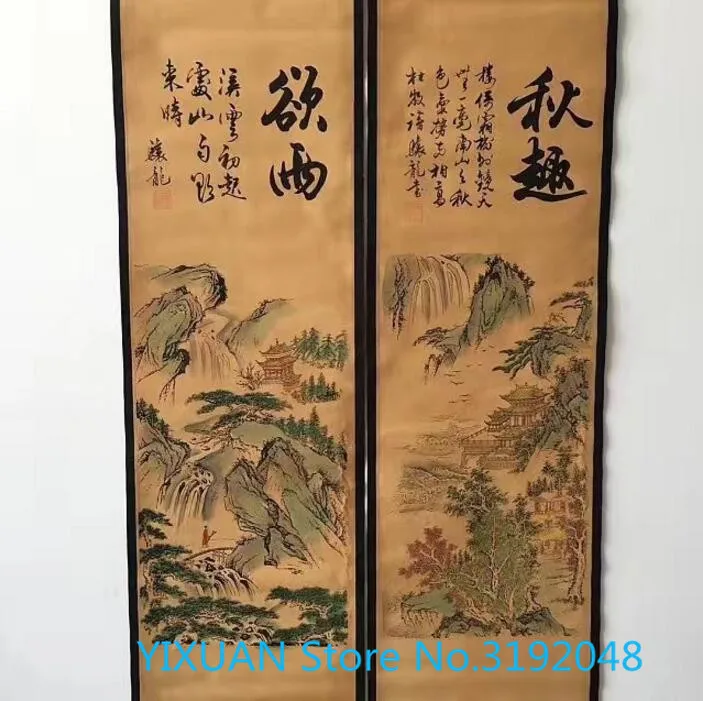 秋趣
樓倚霜樹外鏡天
無一毫南山与秋
色氣勢兩相高
杜牧詩龍書
欲雨
溪雲初起
山
時
龍
YIXUAN Store No.3192048